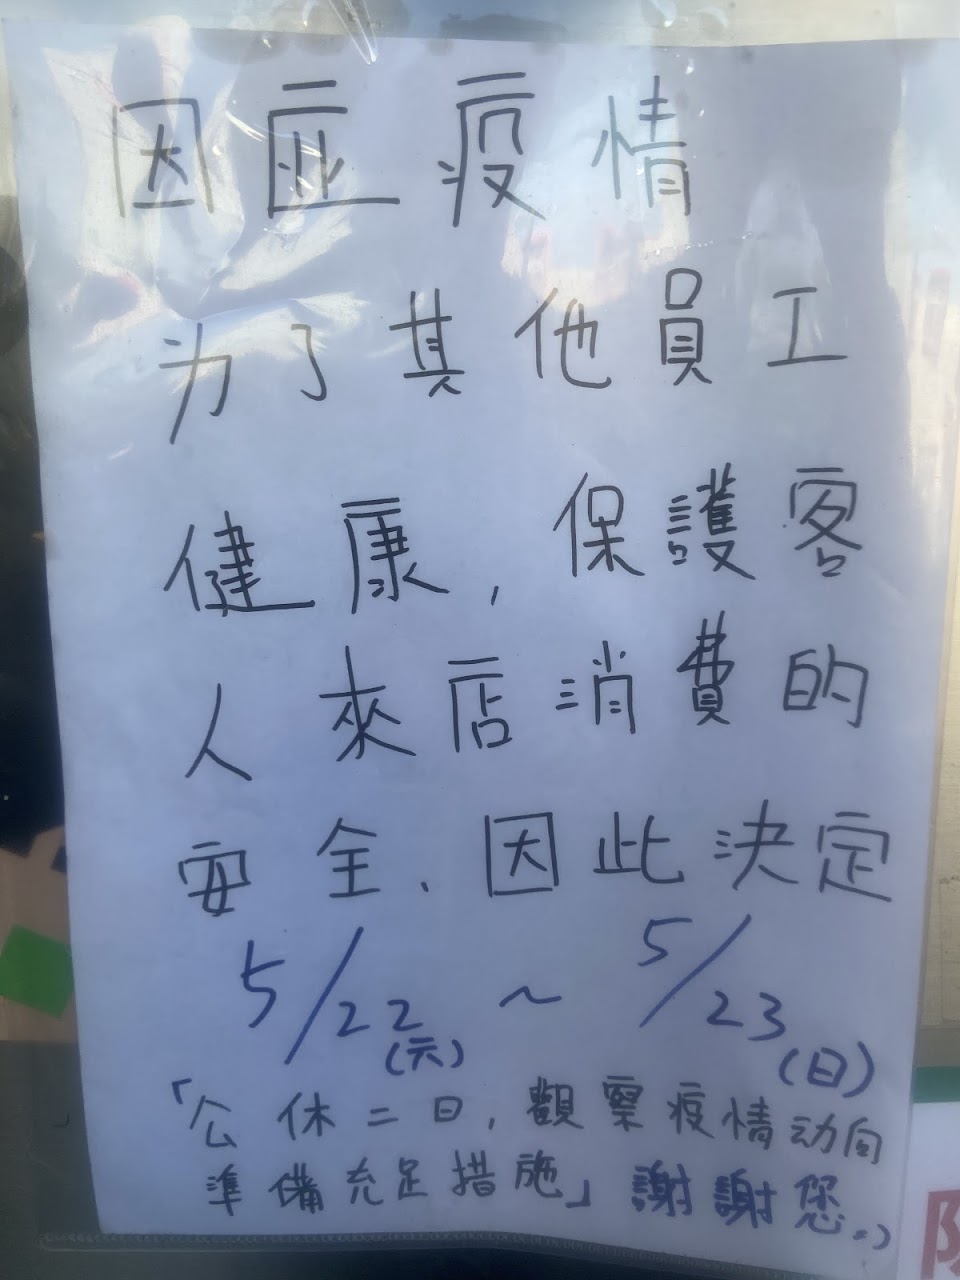 因應疫情
为了其他員工
健康，保護客
人來店消費的
安全、因此決定
5/22(六) ~ 5/23(日)
「公休二日，觀察疫情动向
準備充足措施」謝謝您。:)